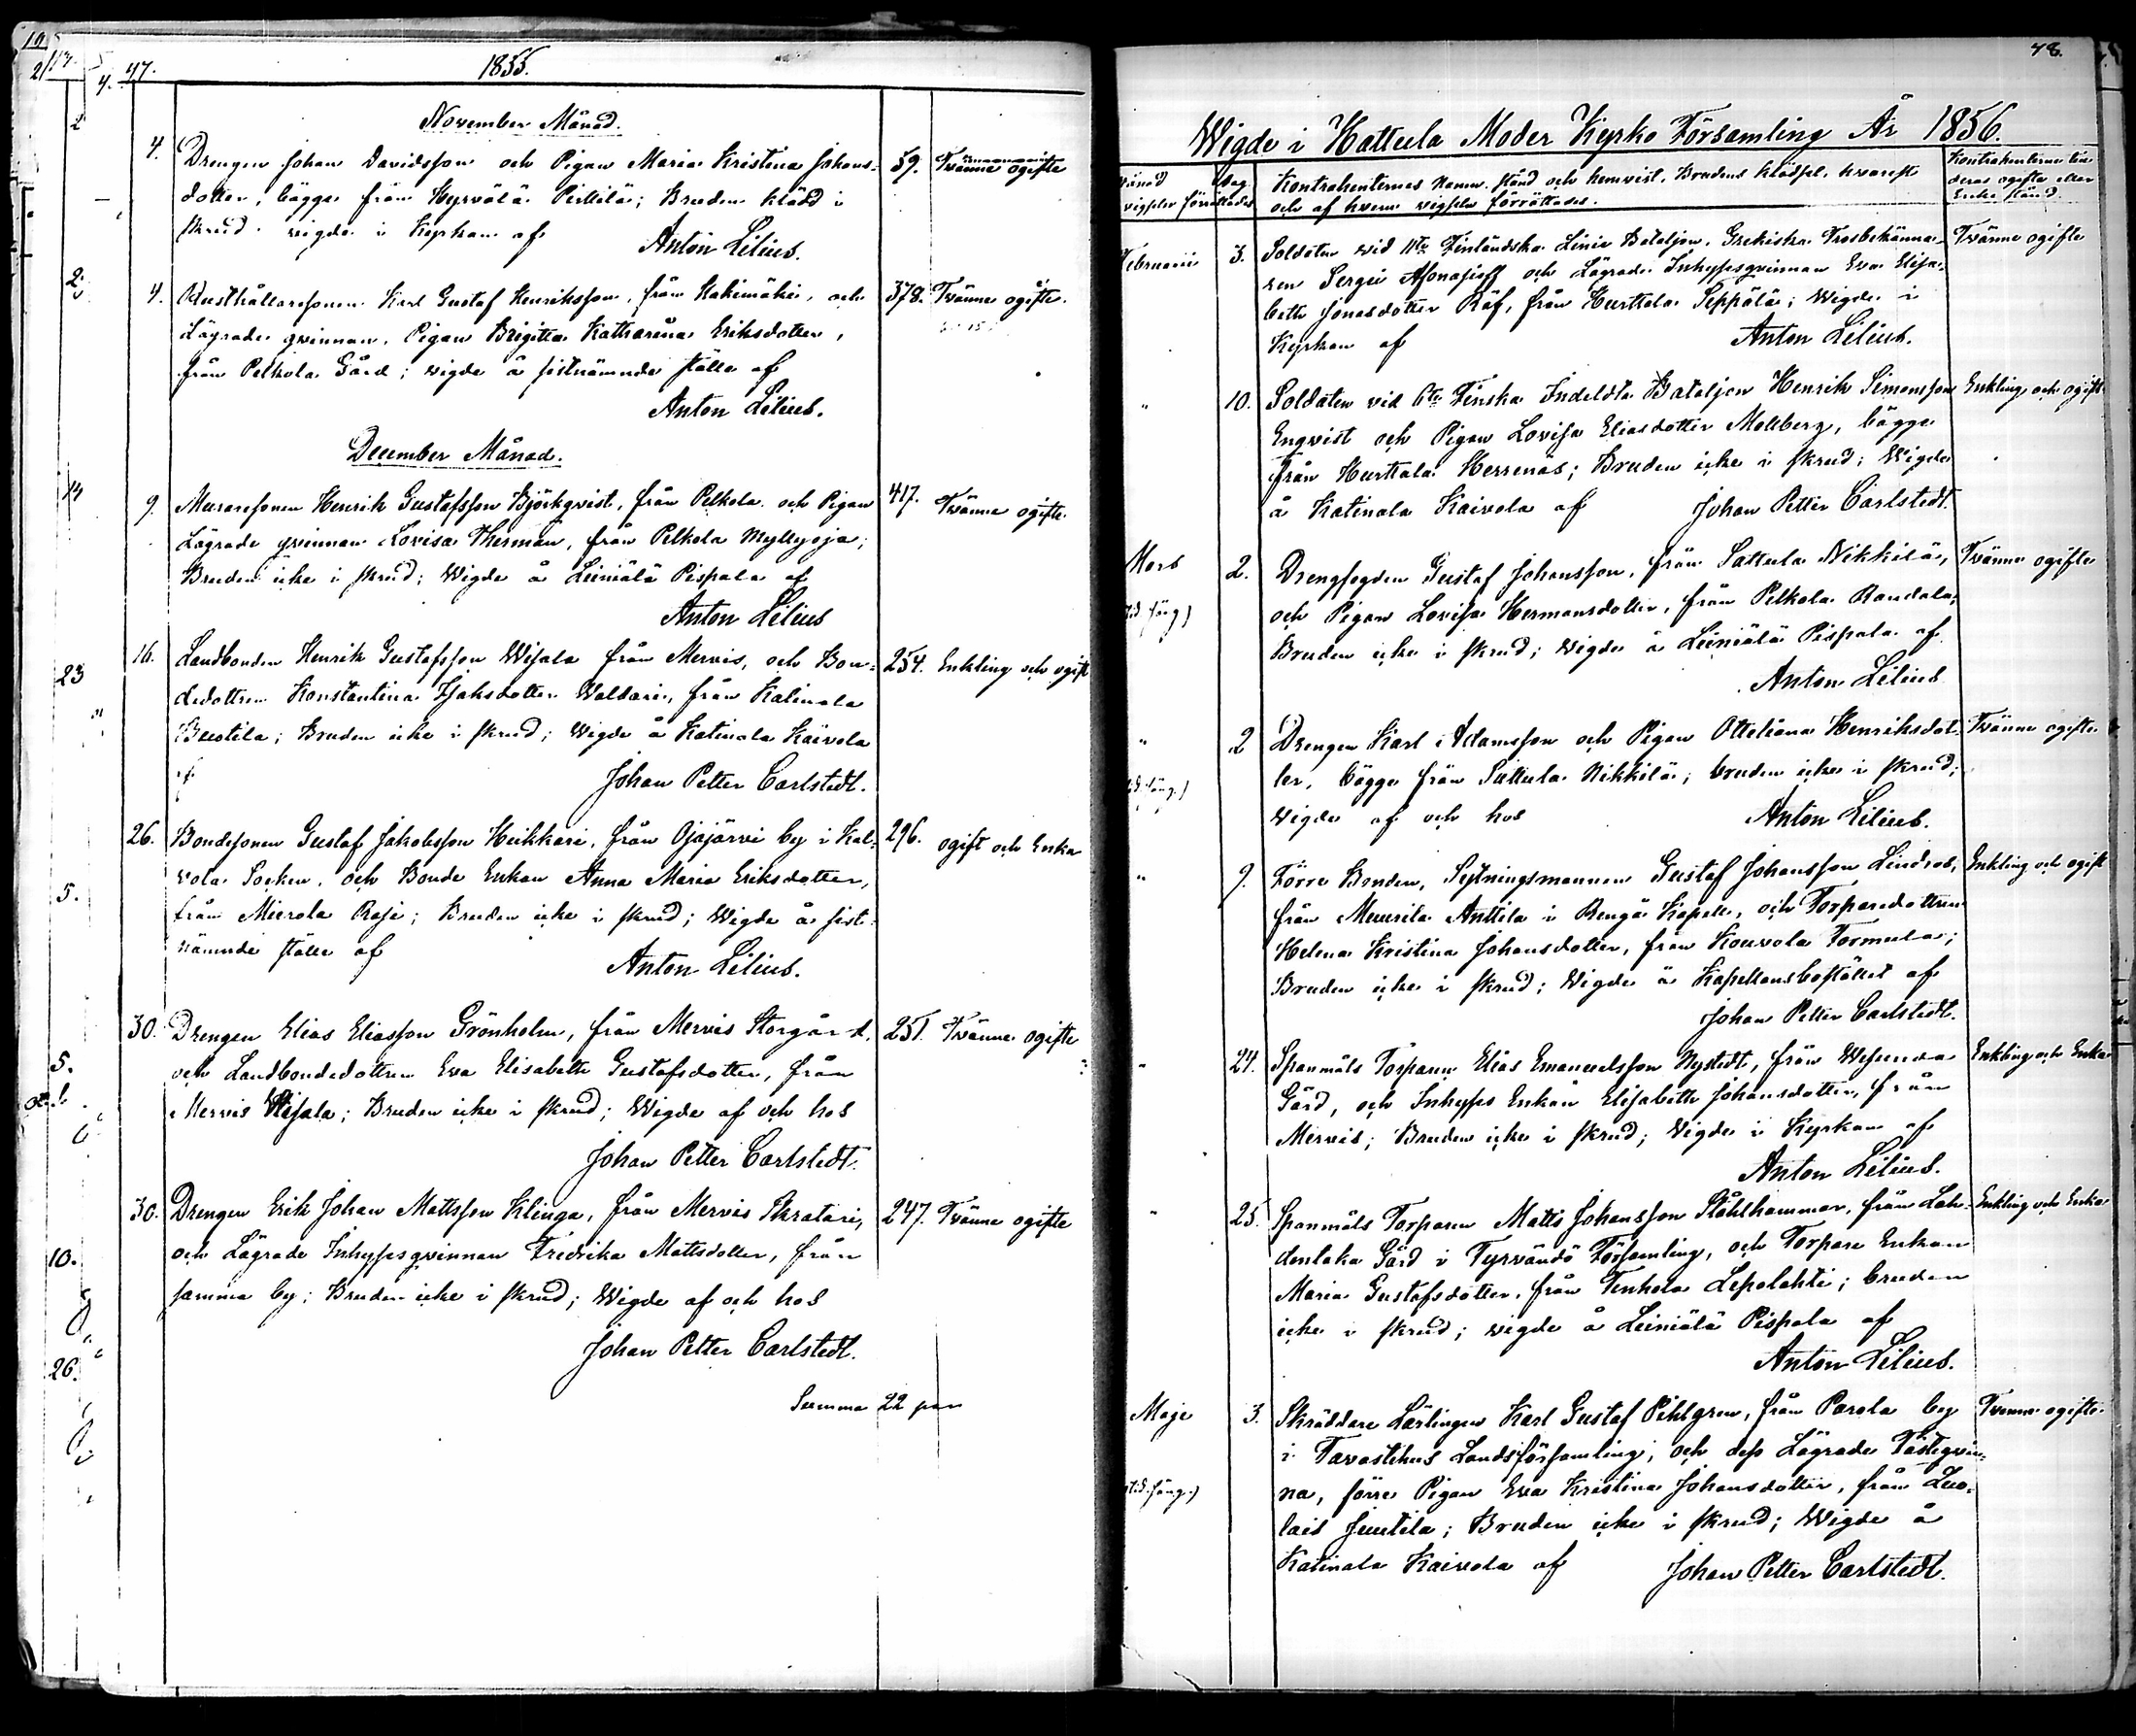 47.
1855.
November Månad.
4. Drengen Johan Davidsson och Pigan Maria Kristina Johans- 59. Tvänne ogifte
dotter, bägge från Hyrvälä Pietilä; Bruden klädd i
skrud. vigde i Kyrkan af
Anton Lilius.
4. Rusthållaresonen Karl Gustaf Henriksson, från Hakimäki, och 378. Tvänne ogifte.
Lägrade qvinnan, Pigan Brigitta Katharina Eriksdotter,
från Pelkola Gård; vigde å sistnämnde ställe af
Anton Lilius.
December Månad.
9. Muraresonen Henrik Gustafsson Björkqvist, från Pelkola och Pigan 417. Tvänne ogifte.
Lägrade qvinnan Lovisa Therman, från Pelkola Myllyoja;
Bruden icke i skrud; Wigde å Leiniälä Pispala af
Anton Lilius
16. Landbonden Henrik Gustafsson Wisala från Mervis, och Bon- 254. Enkling och ogift
dedottren Konstantina Isaksdotter Waldari, från Katinala
Bustila; Bruden icke i skrud; Wigde å Katinala Kaivola
af
Johan Petter Carlstedt.
26. Bondesonen Gustaf Jakobsson Heikkari, från Ojajärvi by i Kal- 296. ogift och Enka
vola Socken, och Bonde Enkan Anna Maria Eriksdotter,
från Mierola Raja; Bruden icke i skrud; Wigde å sist-
nämnde ställe af
Anton Lilius.
30. Drengen Elias Eliasson Grönholm, från Mervis Storgård, 251. Tvänne ogifte
och Landbondedottren Eva Elisabeth Gustafsdotter, från
Mervis Wisala; Bruden icke i skrud; Wigde af och hos
Johan Petter Carlstedt.
30. Drengen Erik Johan Mattsson Klinga, från Mervis Skratari, 247. Tvänne ogifte
och Lägrade Inhysesqvinnan Fredrika Mattsdotter, från
samma by; Bruden icke i skrud; Wigde af och hos
Johan Petter Carlstedt.
Summa 22 par
48.
Wigde i Hattula Moder Kyrko Församling År 1856.
Månad Dag Kontrahenternes Namn, stånd och hemvist, Brudens klädsel, hvarest Kontrahenterne äro
vigseln förrättades och af hvem vigseln förrättades. deras ogifte eller
Enke stånd.
Februarii 3. Soldaten vid 11te Finländska Linie Bataljon, Grekiska Trosbekänna- Tvänne ogifte
ren Sergei Afonasieff och Lägrade Inhysesqvinnan Eva Elisa-
beth Jonasdotter Räf, från Hurttala Seppälä; Wigde i
Kyrkan af Anton Lilius.
" 10. Soldaten vid 6te Finska Indeldta Bataljon Henrik Simonsson Enkling och ogift
Enqvist och Pigan Lovisa Eliasdotter Mollberg, bägge
från Hurttala Herrenäs; Bruden icke i skrud; Wigde
å Katinala Kaivola af Johan Petter Carlstedt.
Mars 2. Drengfogden Gustaf Johansson, från Sattula Nikkilä, Tvänne ogifte
och Pigan Lovisa Hermansdotter, från Pelkola Randala;
Bruden icke i skrud; Wigde å Leiniälä Pispala af
Anton Lilius
" 2 Drengen Karl Adamsson och Pigan Ottiliana Henriksdot- Tvänne ogifte
ter, bägge från Sattula Nikkilä; bruden icke i skrud;
Wigde af och hos Anton Lilius.
" 9. Förre Bonden, Sytningsmannen Gustaf Johansson Lindroos, Enkling och ogift
från Muurila Anttila i Rengo Kapell, och Torparedottren
Helena Kristina Johansdotter, från Kouvola Tormula;
Bruden icke i skrud; Wigde å Kapellansbostället af
Johan Petter Carlstedt.
" 24. Spanmåls Torparen Elias Emanuelsson Nystedt, från Wesunda Enkling och Enka
Gård, och Inhyses Enkan Elisabeth Johansdotter, från
Mervis; Bruden icke i skrud; Wigde i Kyrkan af
Anton Lilius.
" 25. Spanmåls Torparen Matts Johansson Stålhammar, från Lah- Enkling och Enka
denlaka Gård i Tyrväntö Församling, och Torpare Enkan
Maria Gustafsdotter, från Tenhola Lepolahti; bruden
icke i skrud; vigde å Leiniälä Pispala af
Anton Lilius.
Maje 3. Skräddare Lärlingen Karl Gustaf Pihlgren, från Parola by Tvenne ogifte
i Tavastehus Landsförsamling, och dess Lägrade Fästeqvin-
na, förre Pigan Eva Kristina Johansdotter, från Luo-
lais Juutila; Bruden icke i skrud; Wigde å
Katinala Kaivola af Johan Petter Carlstedt.